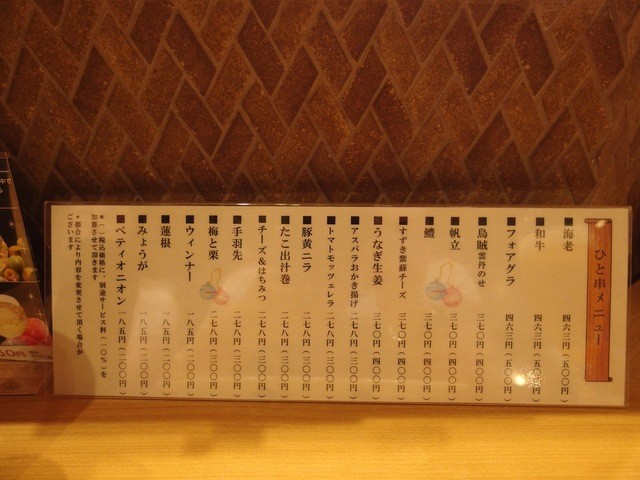 ひと串メニュー
■海老 四六三円(五〇〇円)
■和牛 四六三円(五〇〇円)
■フォアグラ 四六三円(五〇〇円)
■烏賊雲丹のせ 三七〇円(四〇〇円)
■帆立 三七〇円(四〇〇円)
■鱧 三七〇円(四〇〇円)
■すずき紫蘇チーズ 三七〇円(四〇〇円)
■うなぎ生姜 三七〇円(四〇〇円)
■アスパラおかき揚げ 二七八円(三〇〇円)
■トマトモッツェレラ 二七八円(三〇〇円)
■豚黄ニラ 二七八円(三〇〇円)
■たこ出汁巻 二七八円(三〇〇円)
■チーズ&はちみつ 二七八円(三〇〇円)
■手羽先 二七八円(三〇〇円)
■梅と栗 二七八円(三〇〇円)
■ウィンナー 一八五円(二〇〇円)
■蓮根 一八五円(二〇〇円)
■みょうが 一八五円(二〇〇円)
■ペティオニオン 一八五円(二〇〇円)
*()税込価格に、別途サービス料(一〇%)を
加算させて頂きます
*都合により内容を変更させて頂く場合が
ございます